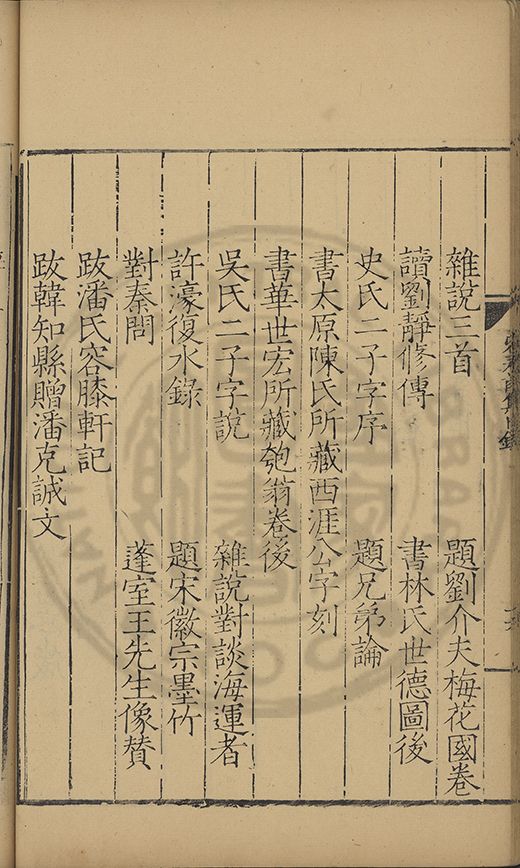 雜說三首 題劉介夫梅花國卷
讀劉靜修傳 書林氏世德圖後
史氏二子字序 題兄弟論
書太原陳氏所藏西涯公字刻
書華世宏所藏匏翁卷後
吳氏二子字說 雜說對談海運者
許濠復水錄 題宋徽宗墨竹
對秦問 蓬室王先生像賛
跋潘氏容膝軒記
跋韓知縣贈潘克誠文